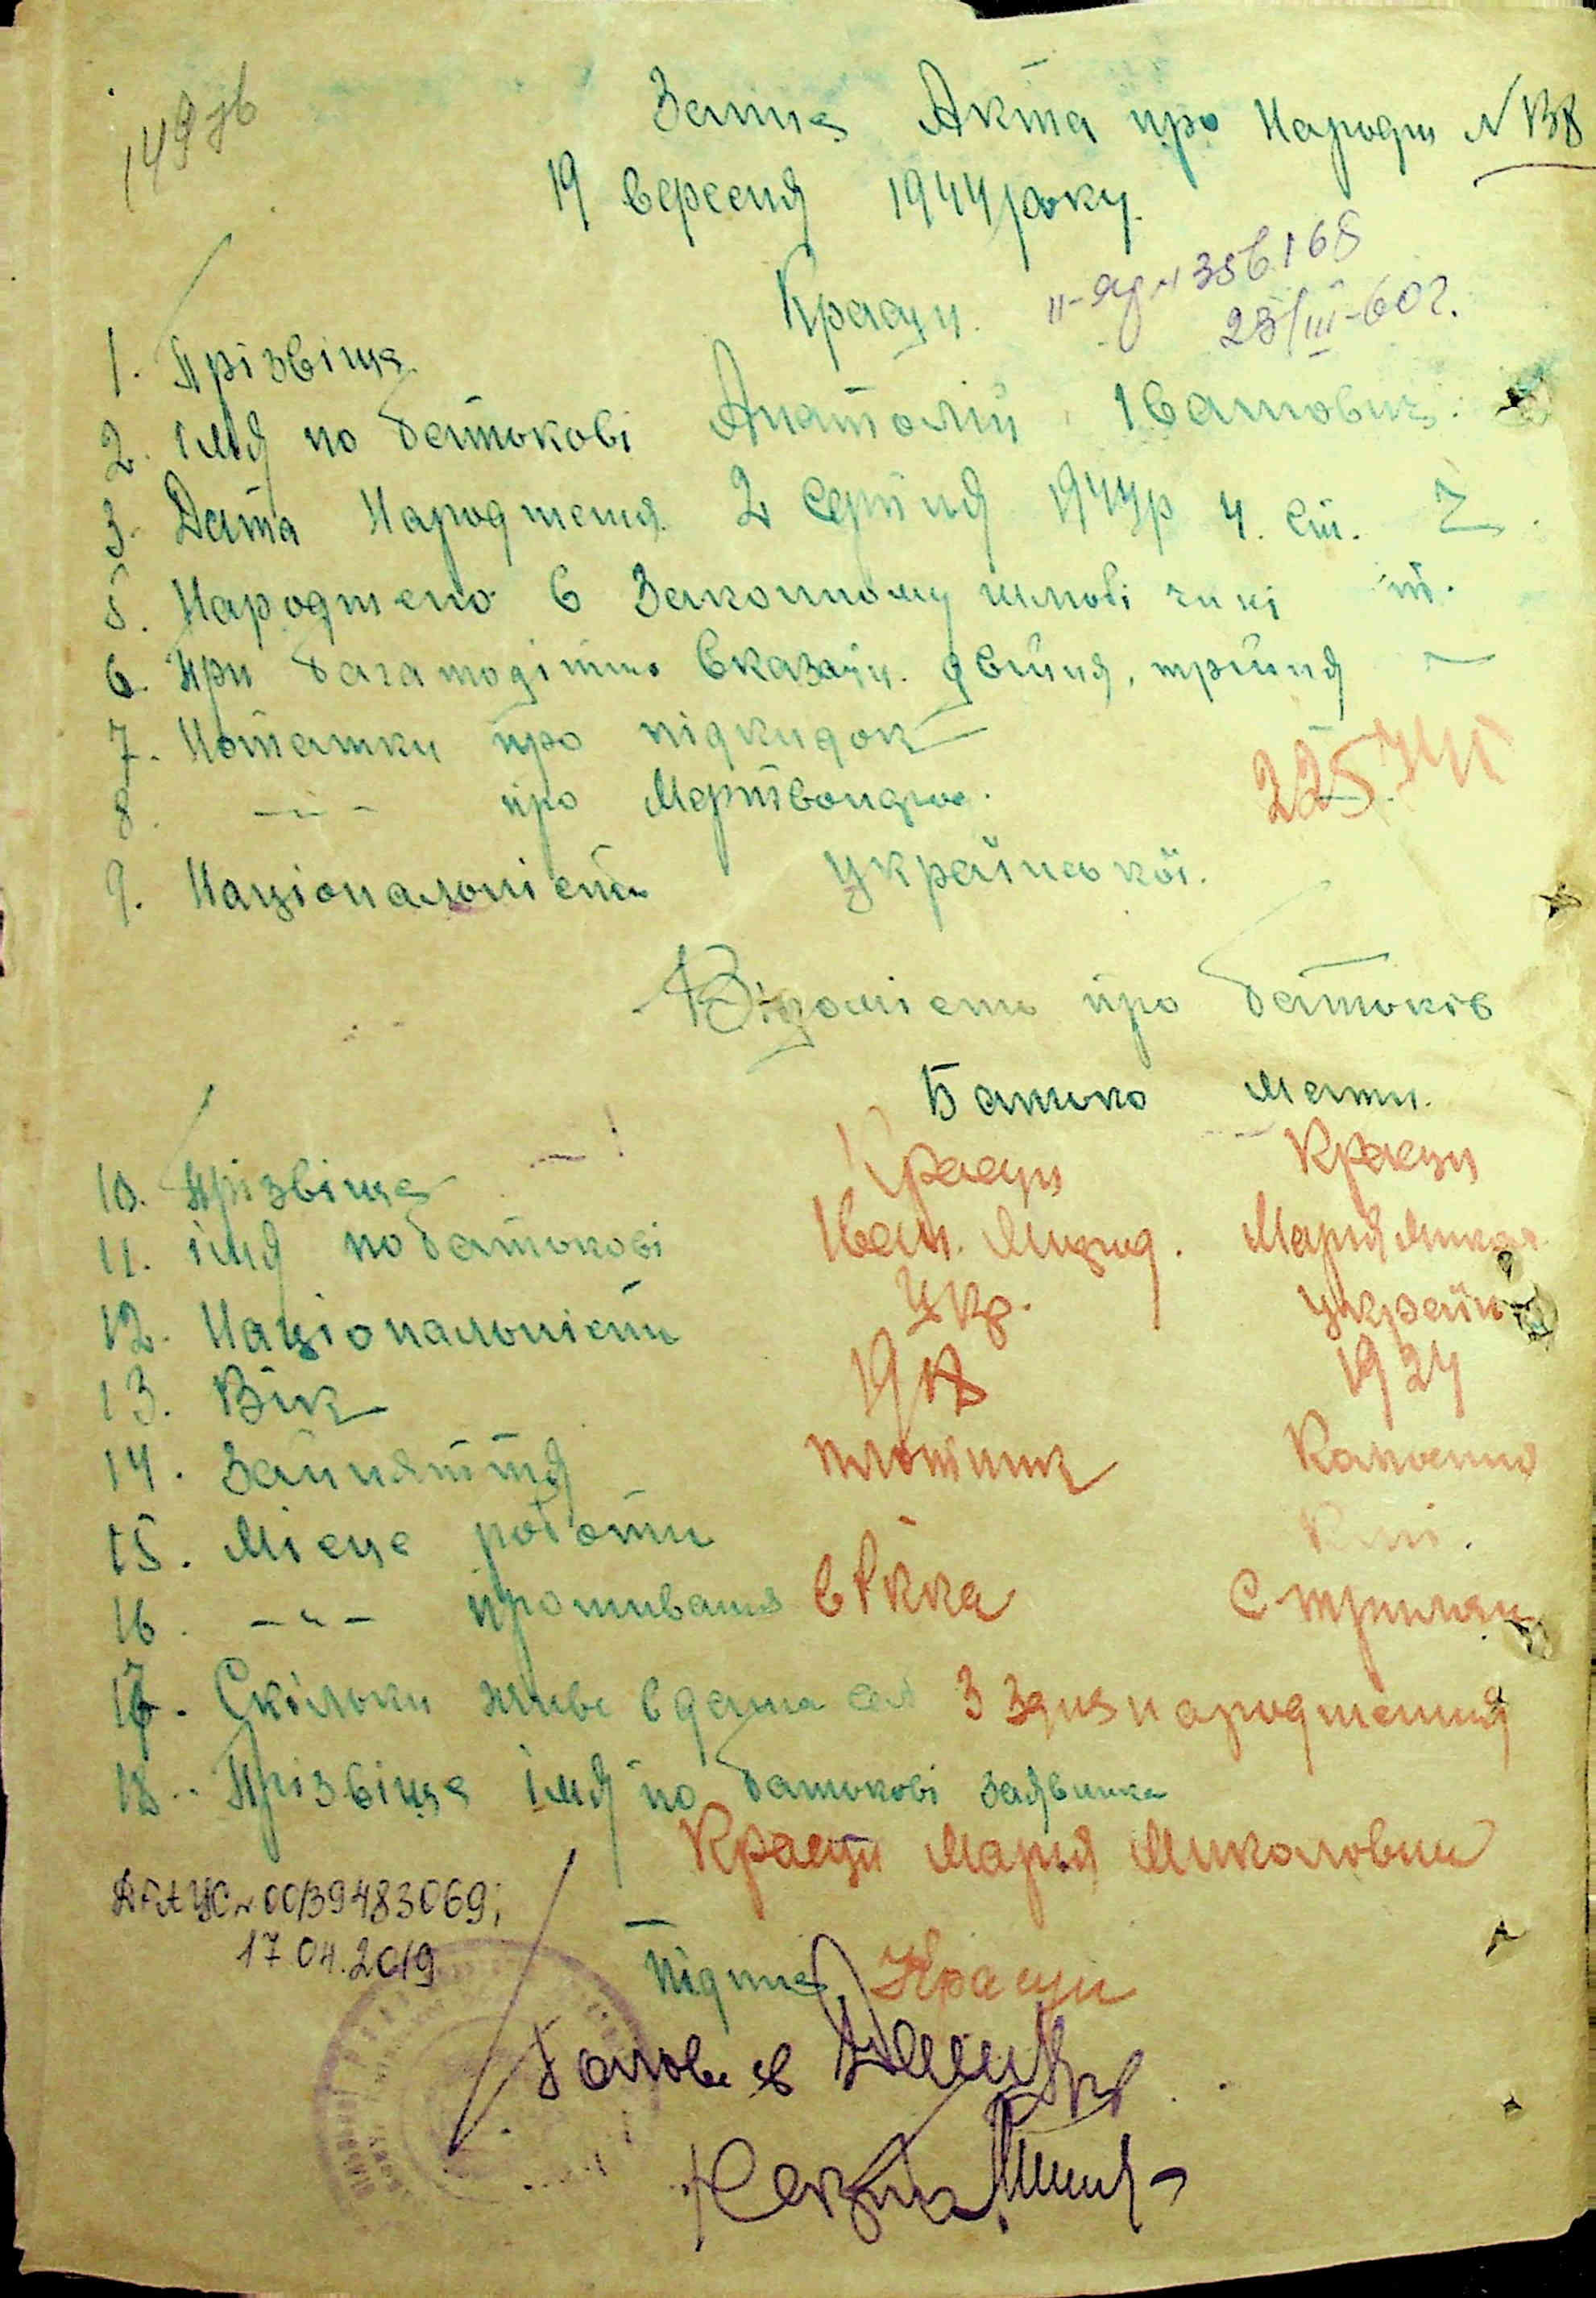 149 зв
Запис Акта про Народж N 138
19 вересня 1944 року.
Красун.
ІІ-яр N 356168
23/III-60 г.
1. Прізвище
2. імя по батькові Анатолій Іванович.
3. Дата Народження 2 серпня 1944 р ч. ст. Ч
5. Народжено в Законному шлюбі чи ні
6. При багатодітно вказати. двійня, трійня —
7. Нотатки про підкидок —
8. —"— про Мертвонар.
9. Національність української.
Відомість про батьків
Батько Мати.
10. Прізвище Красун Красун
11. імя по батькові Іван. Марія Микол
12. Національність Укр. україн
13. Вік 1918 1924
14. Зайняття плотник
15. Місце роботи
16. —"— проживання в Р.ккa
17. Скільки живе в данім селі З здня народження
18. Прізвище імя по батькові заявника
Красун Марія Миколовна
ДРАЦС N 00139483069;
17.04.2019
Підпис Красун
Голова с/в